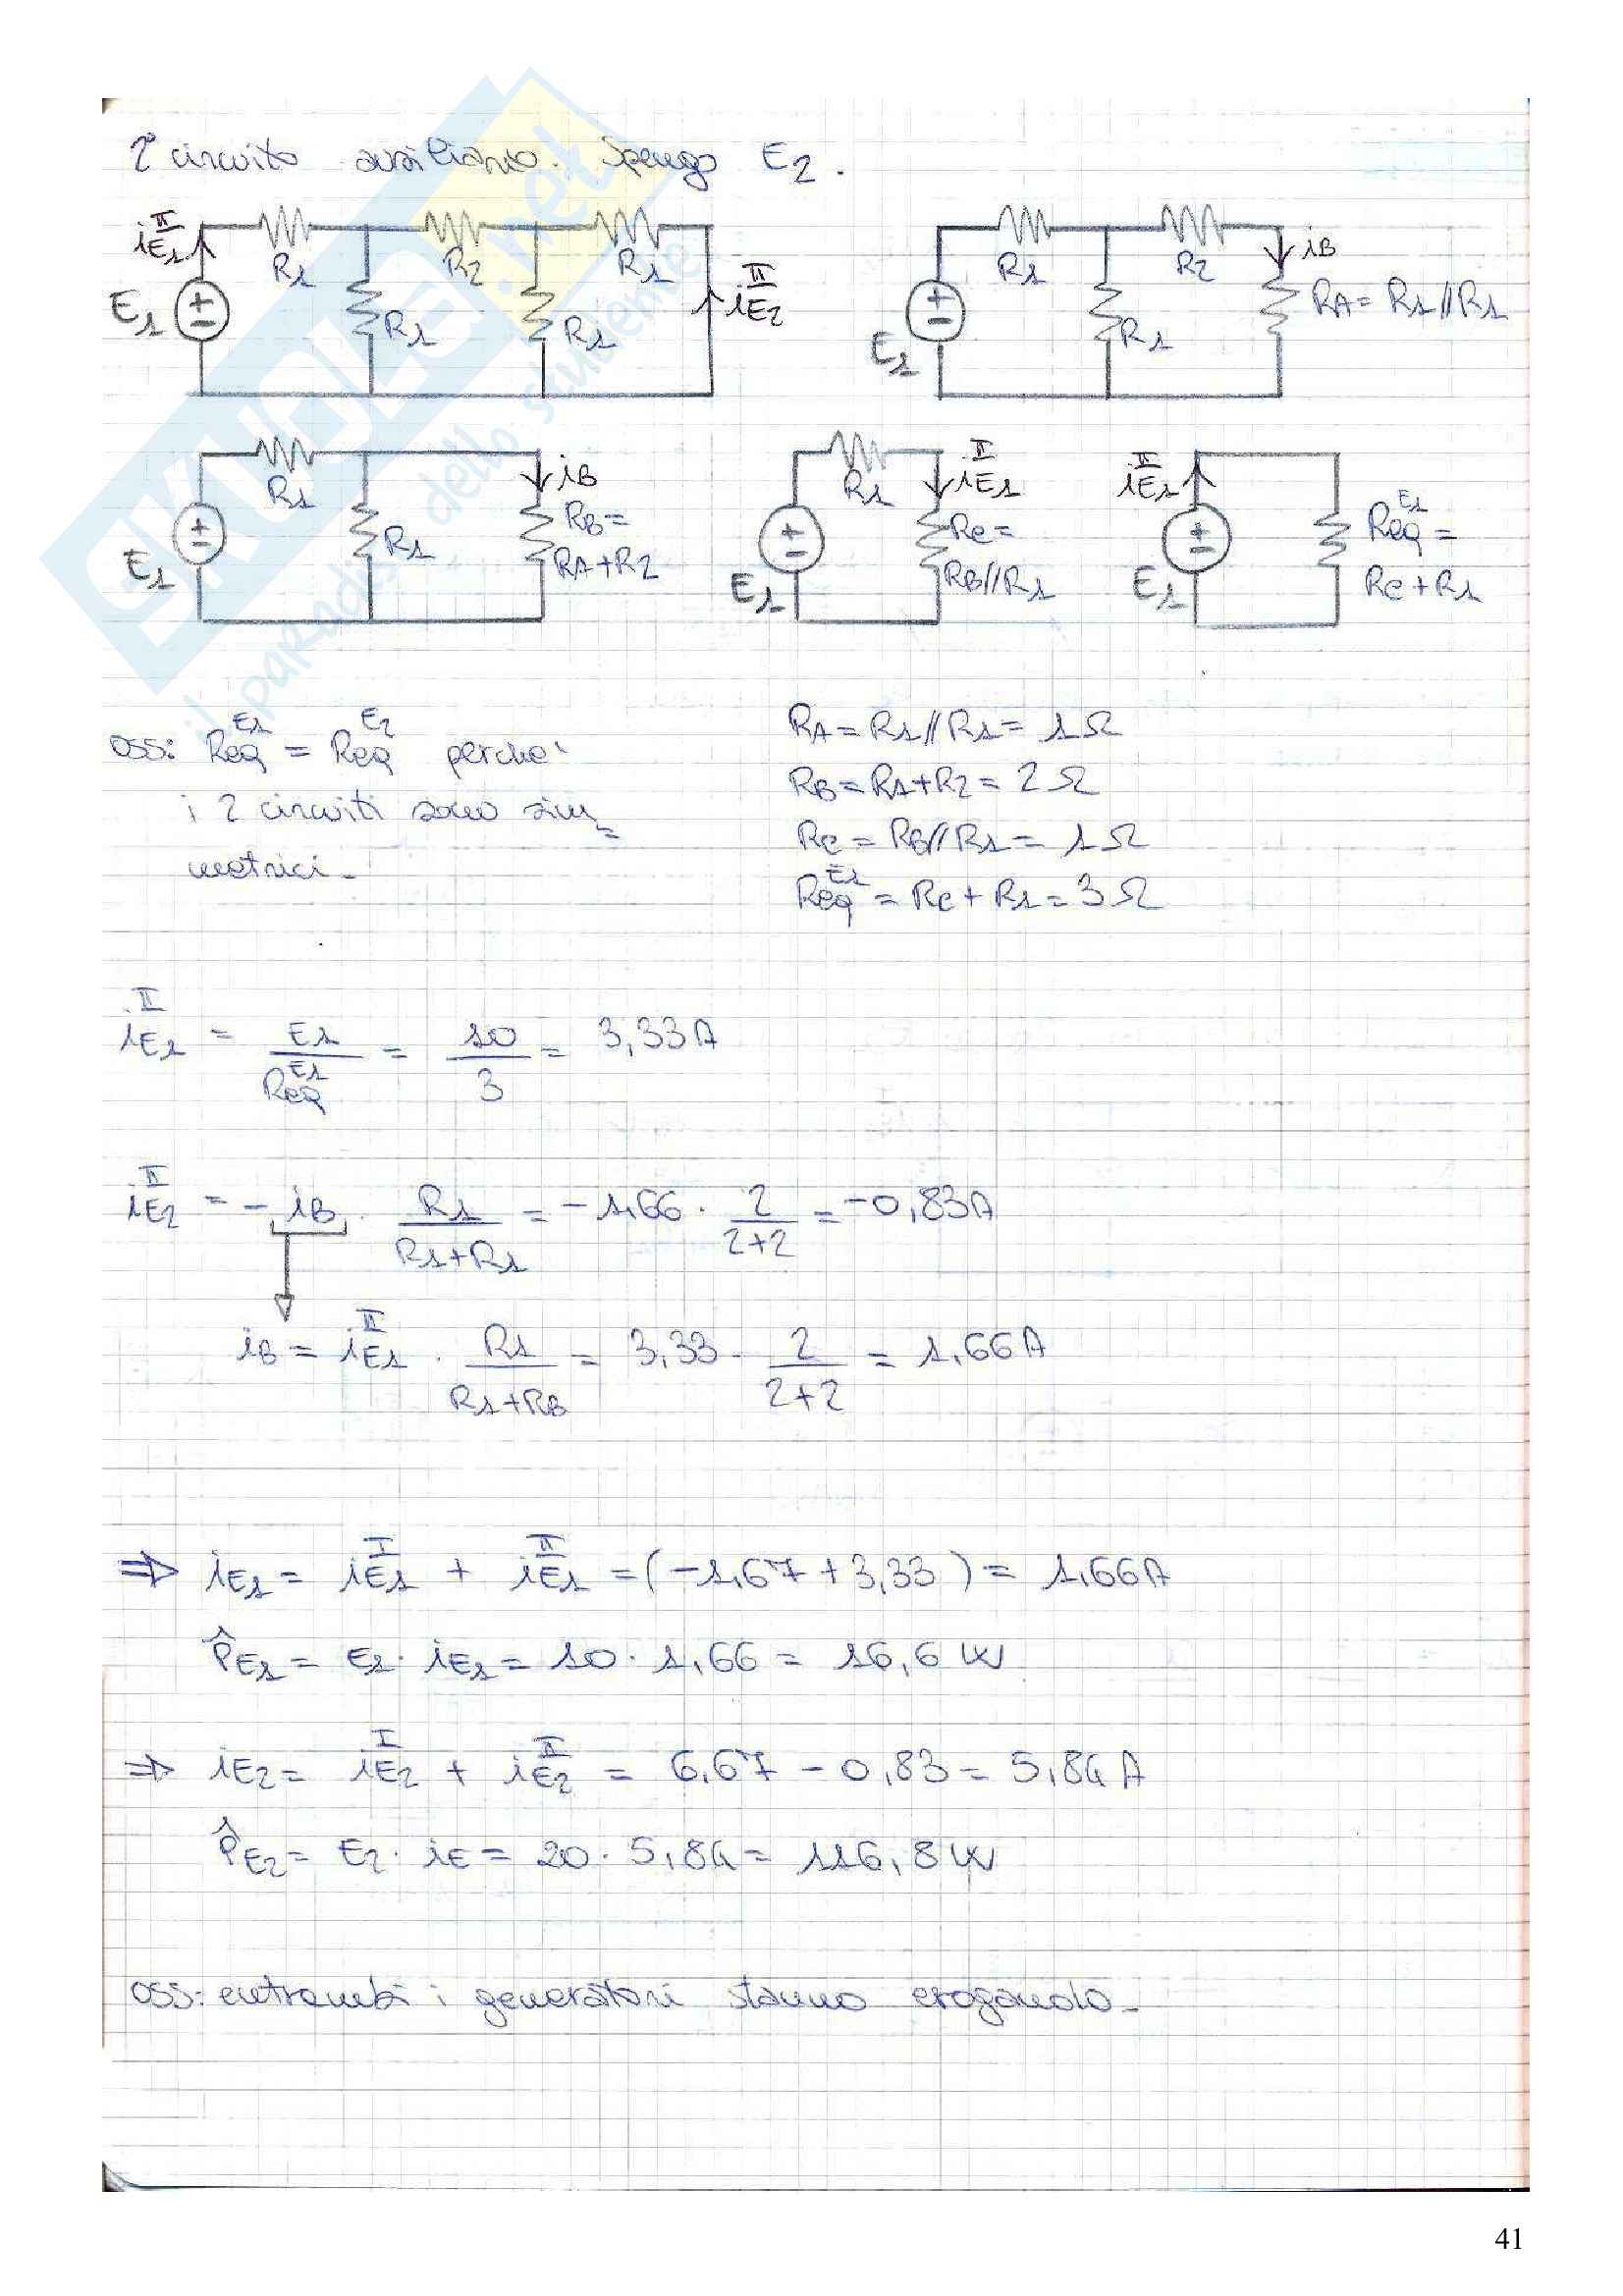 2° circuito ausiliario. Spengo E2.
iE1 II R1 R2 R1 iE2 II
E1 R1 R1
R1 R2 iB
E1 R1 RA = R1//R1
R1 iB
E1 R1 RB = RA+R2
R1 iE1 II
E1 RC = RB//R1
iE1 II
E1 Req E1 = RC+R1
oss: Req E1 = Req E2 perche'
i 2 circuiti sono sim=
metrici-
RA = R1//R1 = 1Ω
RB = RA+R2 = 2Ω
RC = RB//R1 = 1Ω
Req E1 = RC + R1 = 3Ω
iE1 II = E1 / Req E1 = 10 / 3 = 3,33A
iE2 II = - iB · R1 / R1+R1 = -1,66 · 2 / 2+2 = -0,83A
iB = iE1 II · R1 / R1+RB = 3,33 · 2 / 2+2 = 1,66A
⇒ iE1 = iE1 I + iE1 II = (-1,67 + 3,33) = 1,66A
P̂E1 = E1 · iE1 = 10 · 1,66 = 16,6 W
⇒ iE2 = iE2 I + iE2 II = 6,67 - 0,83 = 5,84 A
P̂E2 = E2 · iE = 20 · 5,84 = 116,8 W
oss: entrambi i generatori stanno erogando-
SKUOLA.net
il paradiso dello studente
41